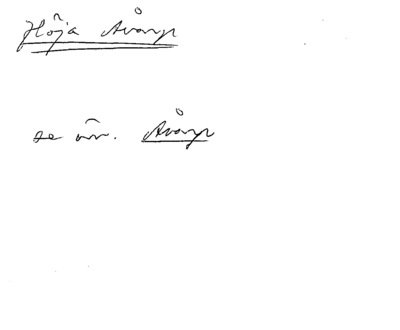 Höja Åvarp
se Åvarp